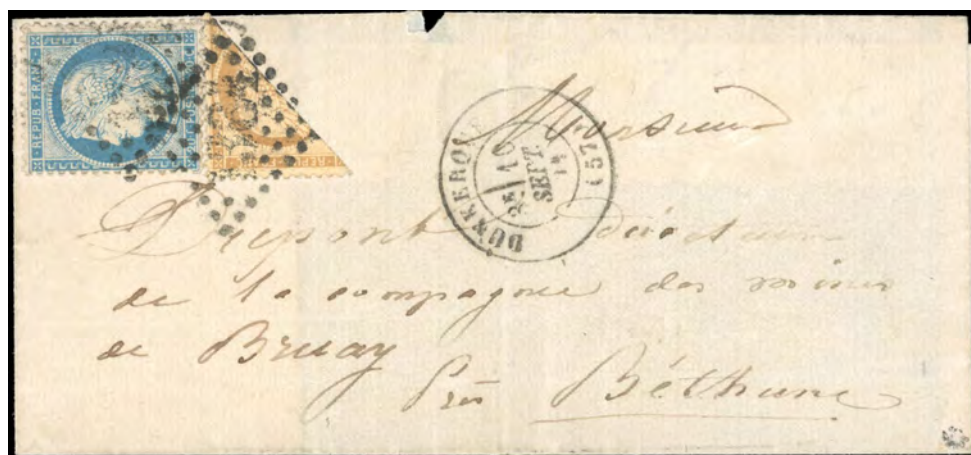 REPUB · FRANC
DUNKERQUE (57)
SEPT.
Monsieur
directeur
de la compagnie des mines
de Bruay
Près Béthune